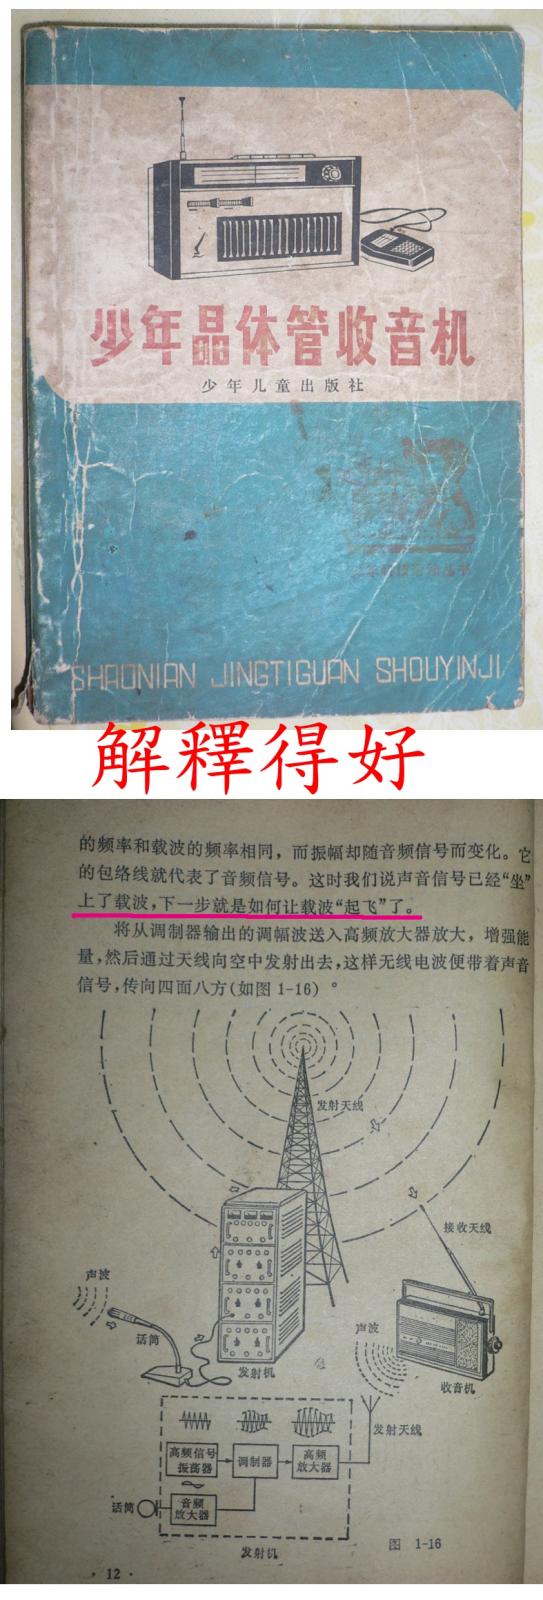 少年晶体管收音机
少年儿童出版社
SHAONIAN JINGTIGUAN SHOUYINJI
解釋得好
的频率和载波的频率相同，而振幅却随音频信号而变化。它
的包络线就代表了音频信号。这时我们说声音信号已经“坐”
上了载波，下一步就是如何让载波“起飞”了。
将从调制器输出的调幅波送入高频放大器放大，增强能
量，然后通过天线向空中发射出去，这样无线电波便带着声音
信号，传向四面八方(如图1-16)。
发射天线
接收天线
声波
话筒
发射机
声波
收音机
发射天线
高频信号
振荡器
调制器
高频
放大器
话筒
音频
放大器
发射机
图 1-16
·12·